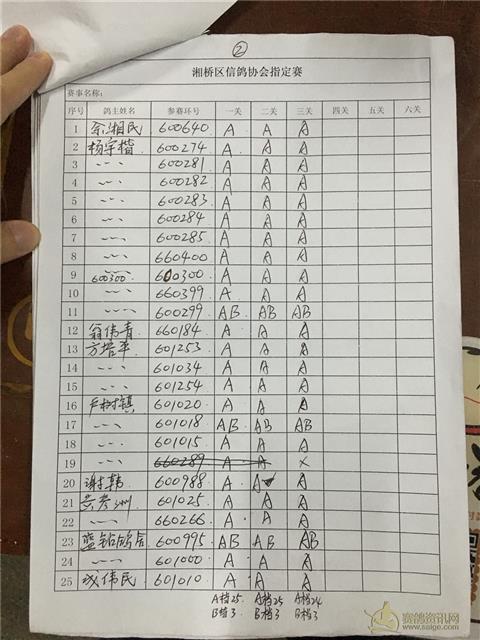 ②
湘桥区信鸽协会指定赛
赛事名称：
序号 鸽主姓名 参赛环号 一关 二关 三关 四关 五关 六关
1 余湘民 600640 A A A
2 杨宇楷 600274 A A A
3 ~~~ 600281 A A A
4 ~~~ 600282 A A A
5 ~~~ 600283 A A A
6 ~~~ 600284 A A A
7 ~~~ 600285 A A A
8 ~~~ 660400 A A A
9 600300 600300 A A A
10 ~~~ 660399 A A A
11 ~~~ 600299 AB AB AB
12 翁伟青 660184 A A A
13 方培平 601253 A A A
14 ~~~ 601034 A A A
15 ~~~ 601254 A A A
16 卢树镇 601020 A A A
17 ~~~ 601018 AB AB AB
18 ~~~ 601015 A A A
19 ~~~ 660289 A A ×
20 谢韩 600988 A A A
21 黄彦洲 601025 A A A
22 ~~~ 660266 A A A
23 蓝钻鸽舍 600995 AB AB AB
24 ~~~ 601000 A A A
25 成伟民 601010 A A A
A档25 A档25 A档24
B档3 B档3 B档3
赛鸽资讯网
www.saige.com